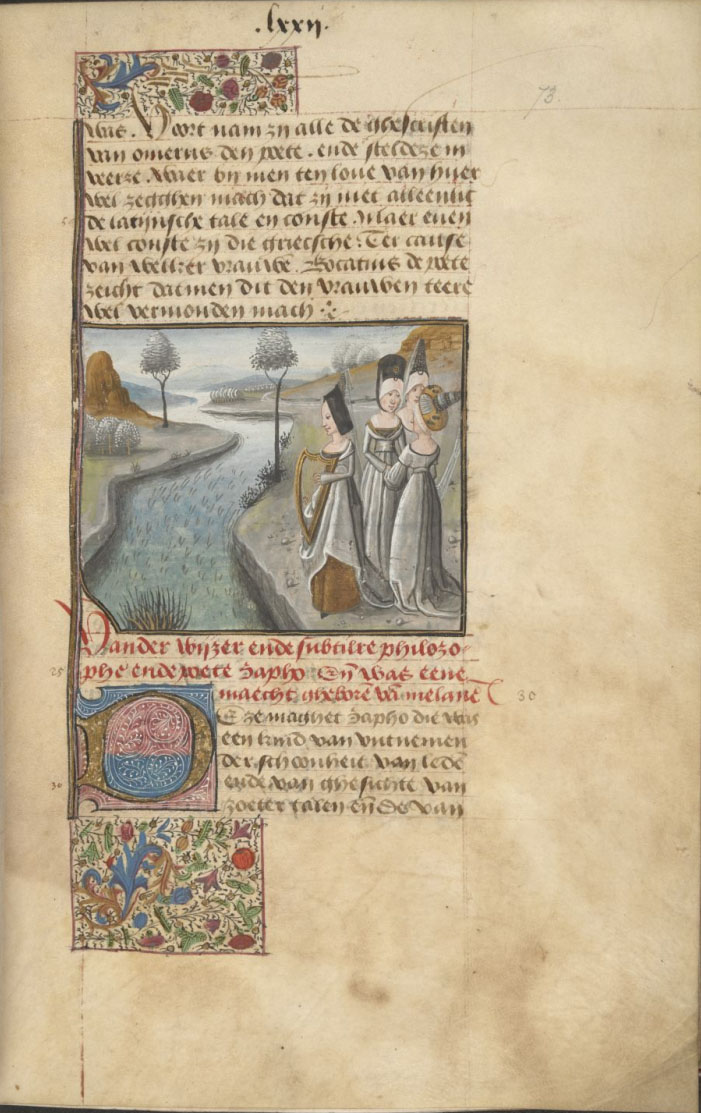 .lxxij.
73.
was. Voort nam zij alle de ghescriften
van omerus den poete. ende steldeze in
veerze. Waer bij men ten love van huer
wel zegghen mach dat zij niet alleenlic
de latijnsche tale en conste. Maer even
wel conste zij die griecsche. Ter cause
van welker vrauwe. Bocatius de poete
zeicht datmen dit den vrauwen teere
wel vermonden mach
Vander wijzer ende subtilre philozo-
phe ende poete Sapho. Eñ was eene
25
maecht ghebore vā melane
30
Deze maghet Sapho die was
een kind van utnemen
der schoonheit van lede
30
ende van ghesichte van
zoeter talen eñ de van